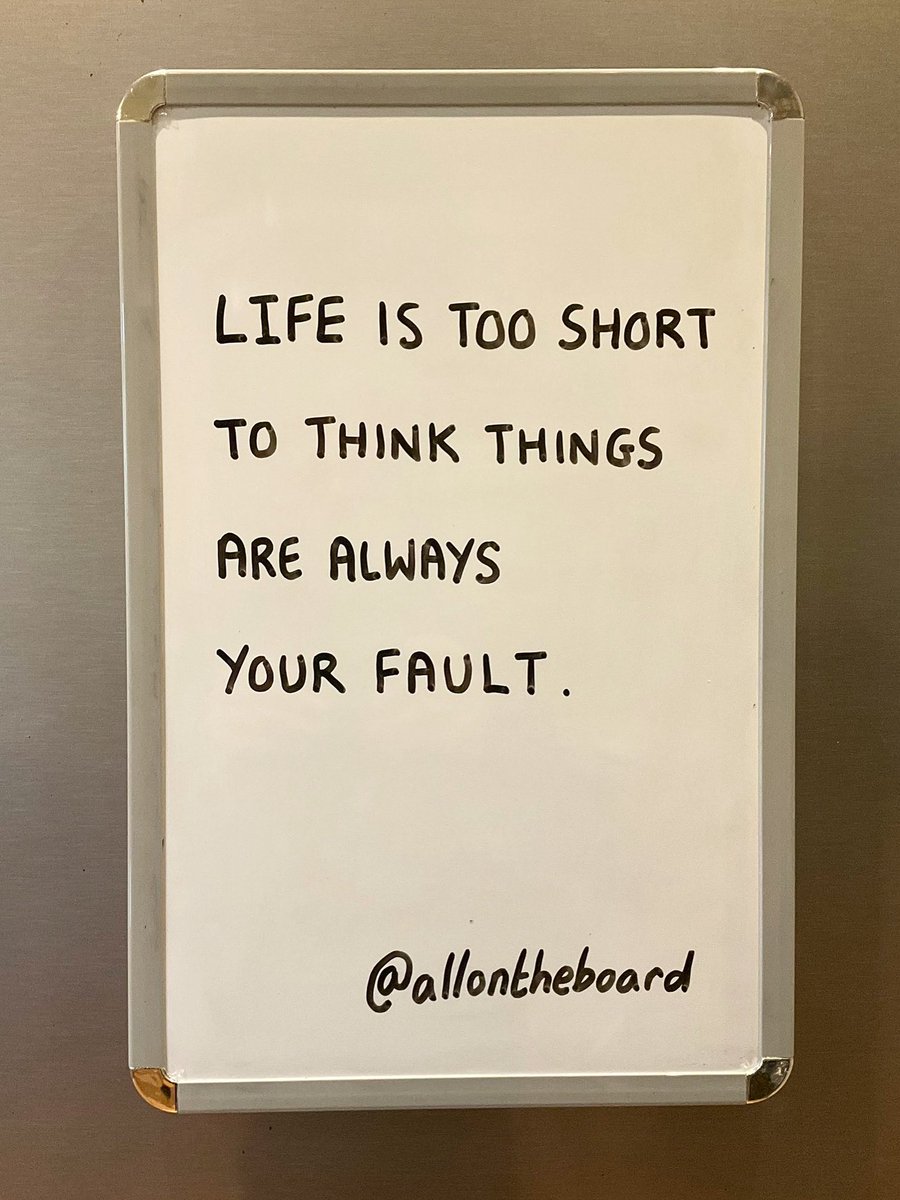 LIFE IS TOO SHORT
TO THINK THINGS
ARE ALWAYS
YOUR FAULT.
@allontheboard